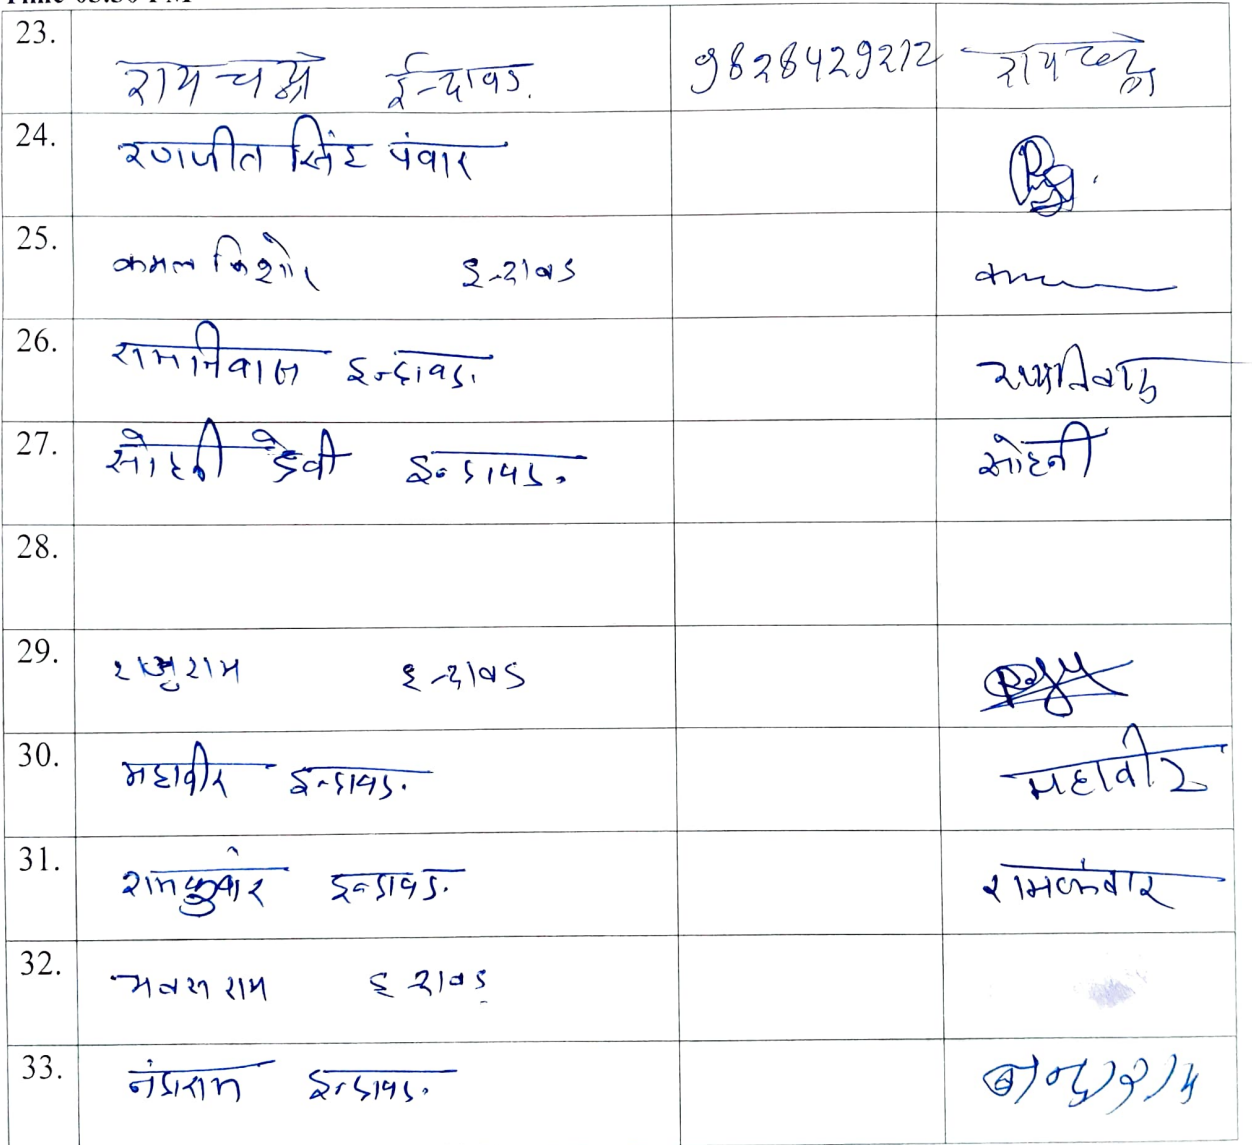 23. रामचन्द्र ईन्दावड. 9828429212 रामचन्द्र
24. रणजीत सिंह पंवार
25. कमल किशोर इन्दावड
26. रामनिवास इन्दावड. रामनिवास
27. सोहनी देवी इन्डावड. सोहनी
28.
29. राजुराम इन्दावड
30. महावीर इन्डावड. महावीर
31. रामकुंवार इन्डावड. रामकंवार
32. राम इन्दावड
33. नंदाराम इन्डावड.